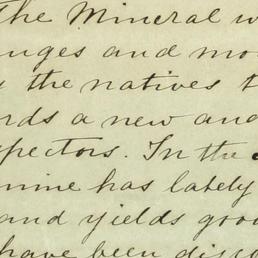 The Mineral w
anges and mo
the natives t
rds a new and
spectors. In the
mine has lately
and yields goo
have been disco